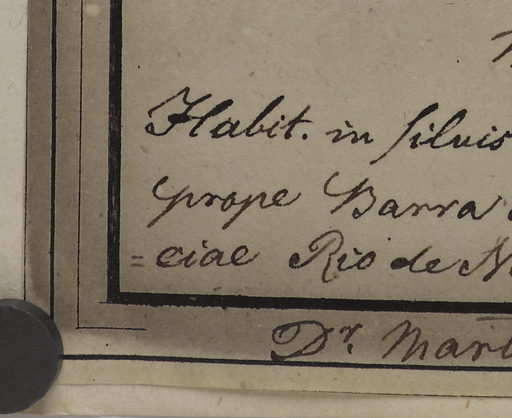 Habit. in silvis
prope Barra
=ciae Rio de
Dr. Mart